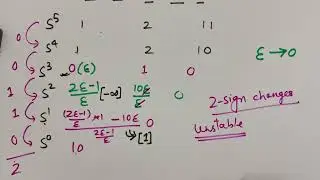 0 S⁵ 1 2 11
0 S⁴ 1 2 10 ε → 0
S³ 0(ε) 1 0
1 S² 2ε-1/ε [-∞] 10ε/ε 0 2-sign changes
1 S¹ (2ε-1)/ε ×1 - 10ε / 2ε-1/ε → [1] 0 unstable
0 S⁰ 10
2